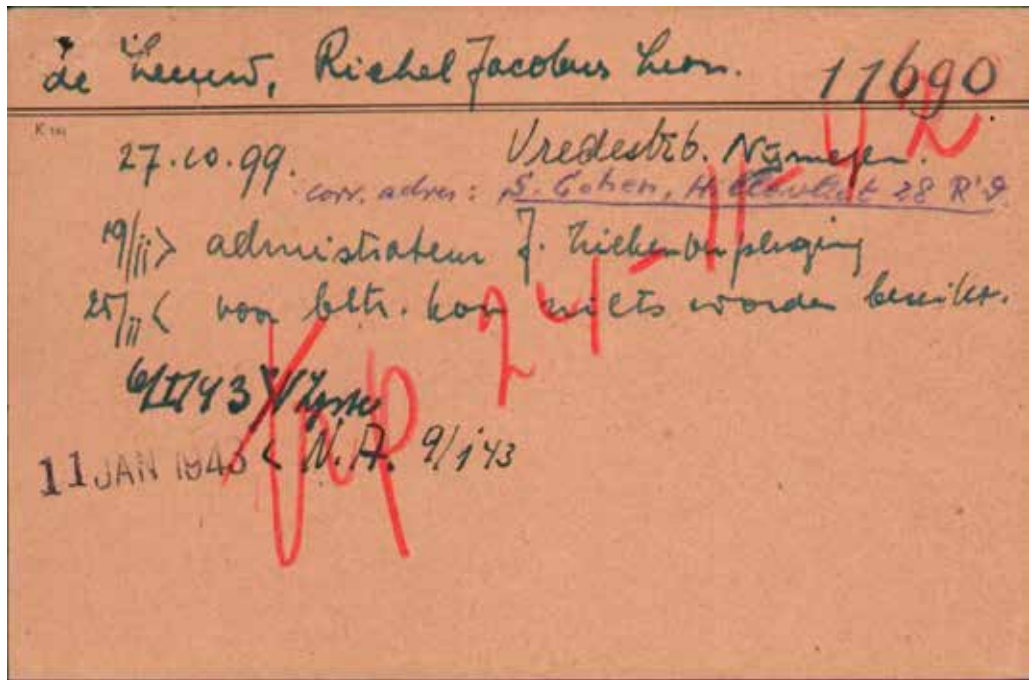 de Leeuw, Richel Jacobus Leon. 11690
K 1
27.10.99. Vredestrb. Nijmegen.
corr. adres: S. Cohen, 28 R'd
19/ii > administrateur J. Ziekenverpleging
25/ii < voor betr. kon niets worden bereikt.
6/I/43
11 JAN 1943 < N.A. 9/1 43
24-11-42